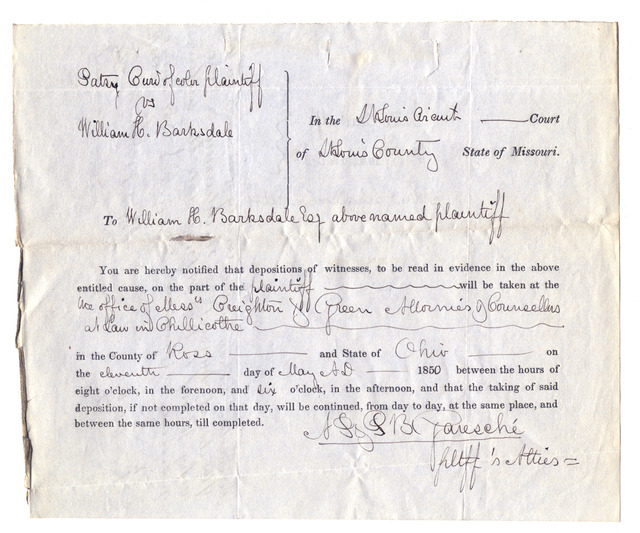 Patsy Curd of color plaintiff
vs
William H. Barksdale
In the St Louis Circuit Court
of St Louis County State of Missouri.
To William H. Barksdale Esq above named plaintiff
You are hereby notified that depositions of witnesses, to be read in evidence in the above
entitled cause, on the part of the plaintiff will be taken at the
office of Mess's Creighton & Green Attornies & Counsellors
at law in Chillicothe
in the County of Ross and State of Ohio on
the eleventh day of May AD 1850 between the hours of
eight o'clock, in the forenoon, and six o'clock, in the afternoon, and that the taking of said
deposition, if not completed on that day, will be continued, from day to day, at the same place, and
between the same hours, till completed.
A & B Garesché
pltff's Atties